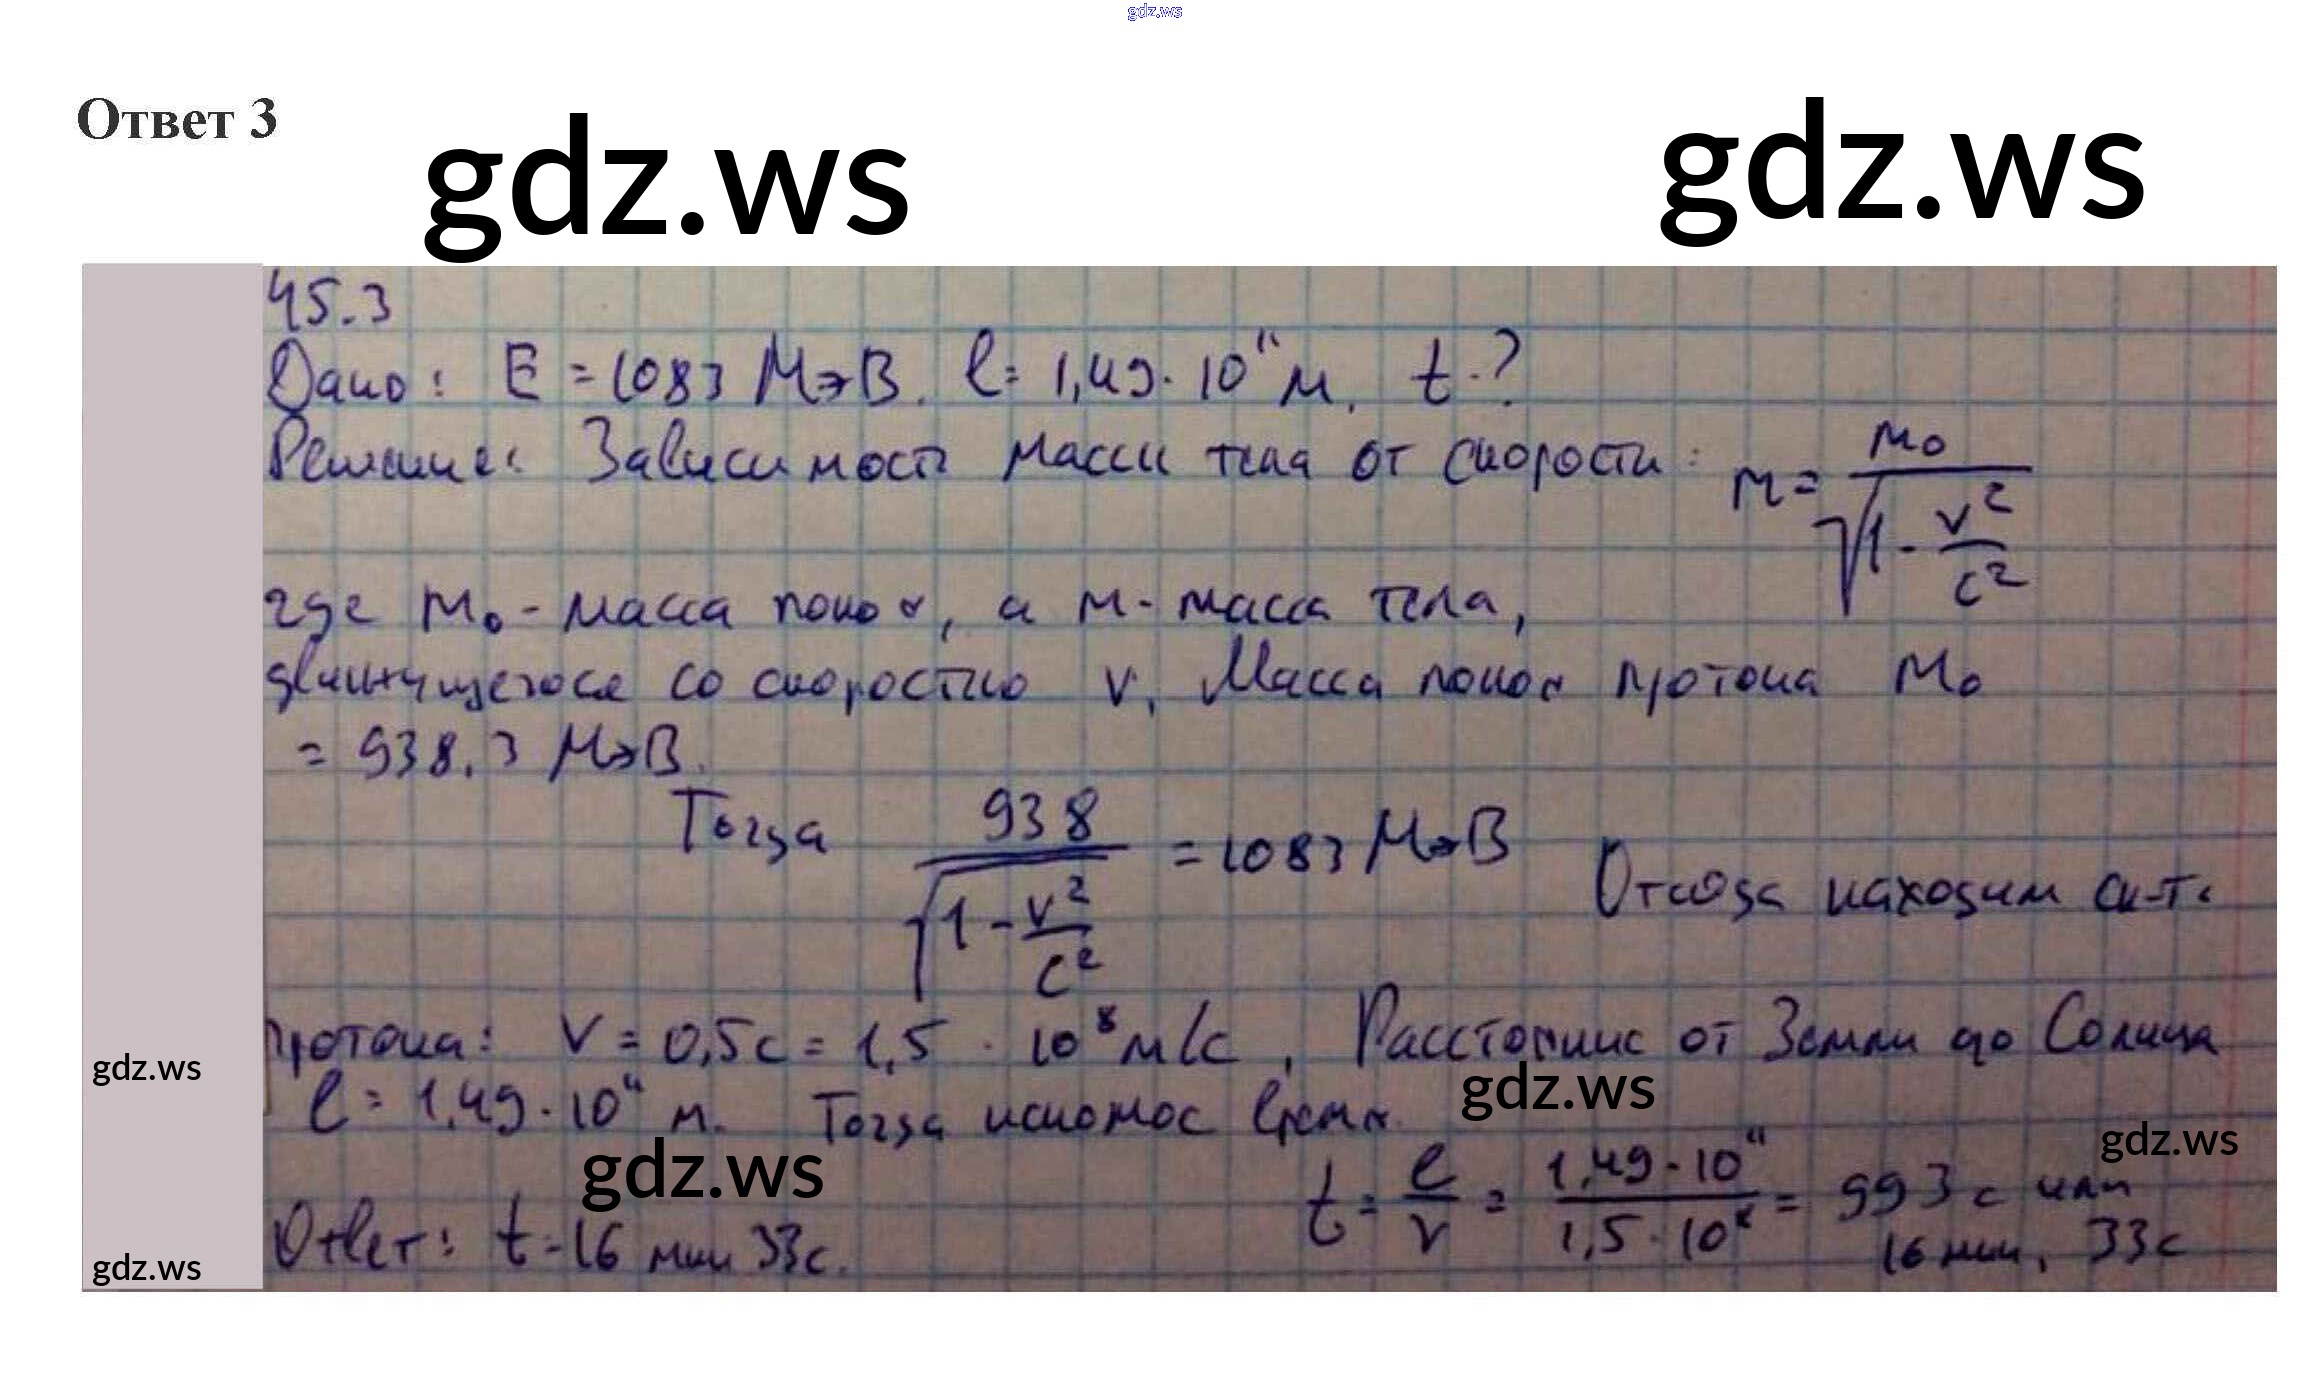 gdz.ws
Ответ 3
gdz.ws gdz.ws
45.3
Дано: E = 1083 МэВ. l = 1,49 · 10¹¹ м. t - ?
Решение: Зависимость массы тела от скорости: m = m₀ / √(1 - v²/c²)
где m₀ - масса покоя, а m - масса тела,
движущегося со скоростью v. Масса покоя протона m₀
= 938.3 МэВ.
Тогда 938 / √(1 - v²/c²) = 1083 МэВ Отсюда находим ск-ть
протона: v = 0,5c = 1,5 · 10⁸ м/с, Расстояние от Земли до Солнца
gdz.ws gdz.ws
l = 1,49 · 10¹¹ м. Тогда искомое время.
gdz.ws gdz.ws
t = l/v = 1,49 · 10¹¹ / 1,5 · 10⁸ = 993 с или
16 мин, 33с
Ответ: t = 16 мин 33с.
gdz.ws